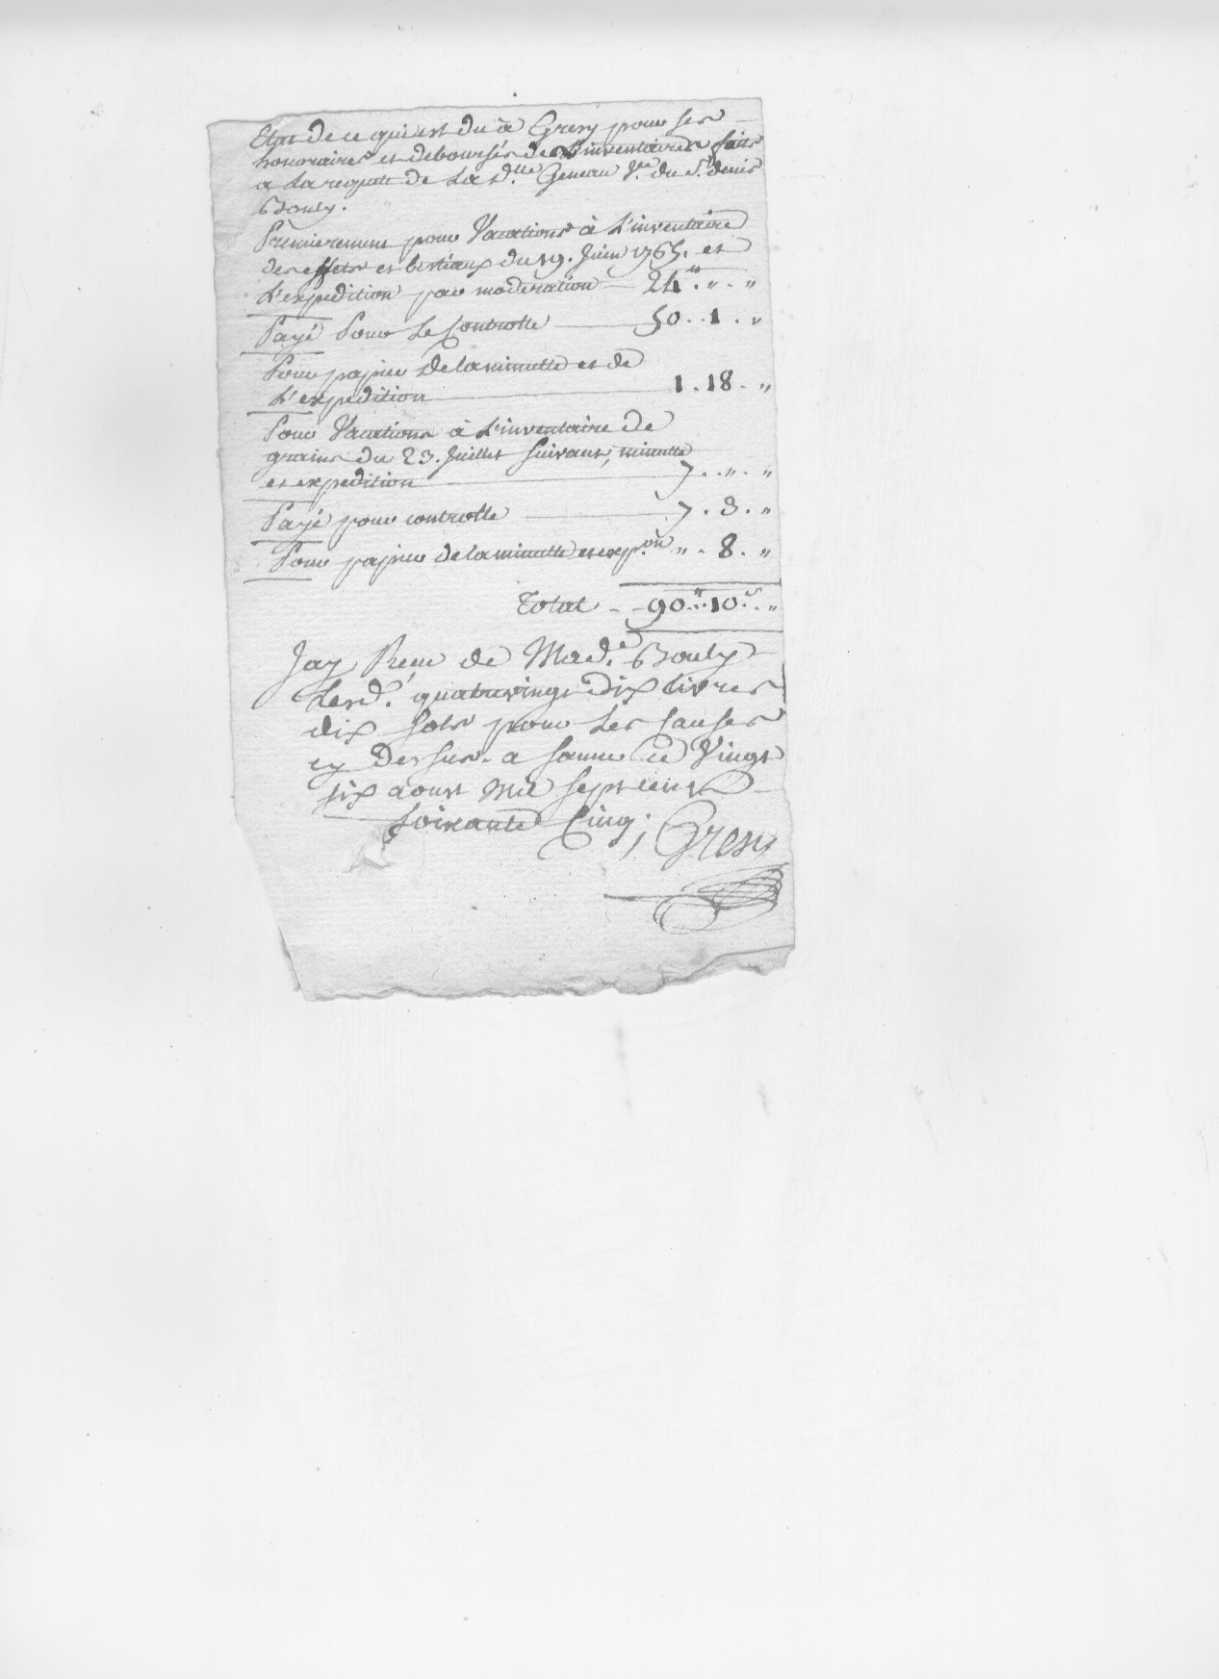 Etat de ce qui est du à Gresy pour ses
honoraires et deboursés des inventaires faits
a la requete de la d.lle Geneau V.e du S.r denis
Bouly.
Premierement pour Vacations à L'inventaire
des effets et bestiaux du 19. Juin 1765. et
L'expedition par moderation — 24.# " . "
Payé Pour Le Controlle — 50 . . 1 . "
Pour papier de la minutte et de
L'expedition — 1 . 18 . "
Pour Vacations à L'inventaire de
grains du 23. Juillet suivant, minutte
et expedition — 7 . . " . "
Payé pour controlle — 7 . 3 . "
Pour papier de la minutte et exp.on " . 8 . "
Total - - 90.# 10.s "
Jay Receu de Mad.e Bouly
Lesd. quatrevingt dix livres
dix sols pour les causes
cy Dessus. a ce Vingt
six aoust Mil sept cent
soixante Cinq ; Gresy